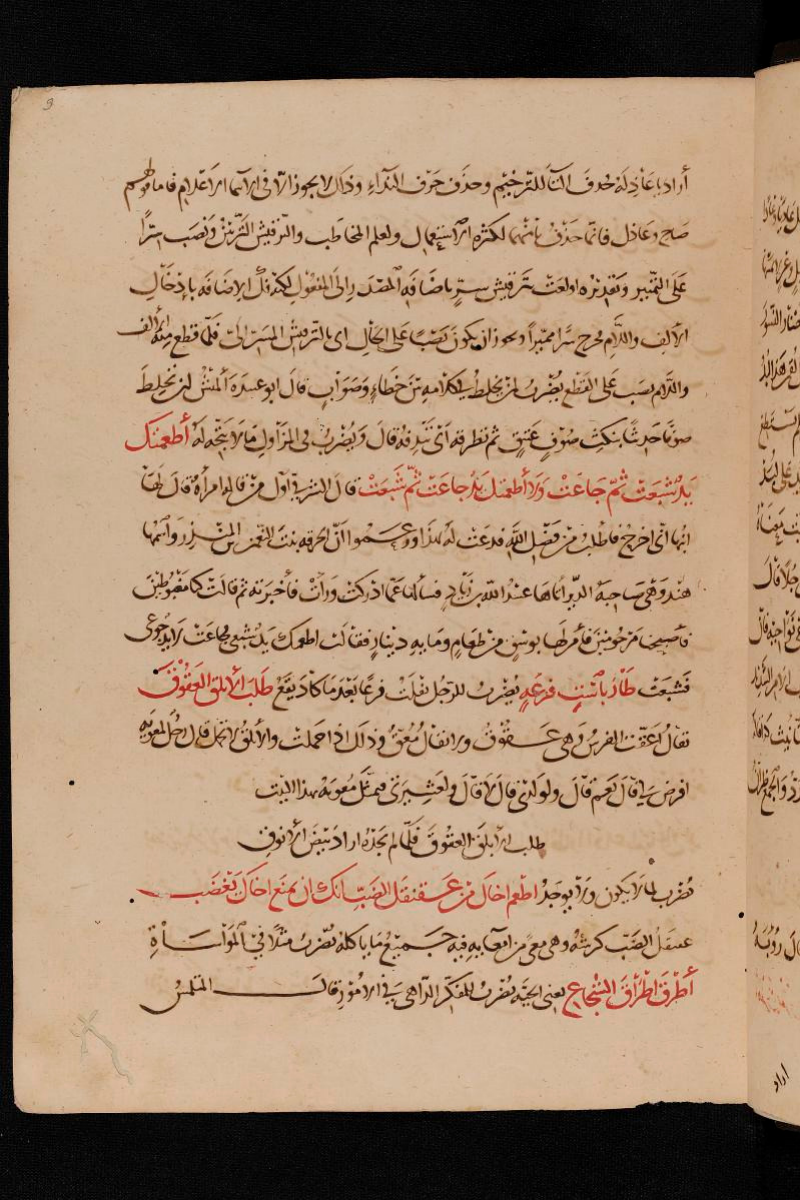 أراد يا عاذلة فحذف التاء للترخيم وحذف حرف النداء وذلك لا يجوز إلا في الأسماء الأعلام فاما قولهم
صاح وعاذل فانما حذف يا منهما لكثرة الاستعمال ولعلم المخاطب والترقيش التزيين ونصب سترا
على التمييز وتقديره اولعت بترقيش ستر باضافة المصدر إلى المفعول لكنه فك الإضافة بإدخال
الألف واللام فخرج سترا مميزاً ويجوز ان يكون نصبا على الحال اى بالترقيش المستر الى فلما قطع منه الألف
واللام نصب على القطع يضرب لمن يخلط في كلامه بين خطاء وصواب قال ابو عبيدة المش ان تخلط
صوفا حديثا بنكث صوف عتيق ثم تطرقه أي تندفه قال ويضرب في المزاول ما لا يتجه له أطعمتك
يد شبعت ثم جاعت ولا أطعمتك يد جاعت ثم شبعت قال الشرقي أول من قاله امرأة قال لها
ابنها اني اخرج فاطلب من فضل الله فدعت له بهذا وزعموا أن الحرقة بنت النعمن بن المنذر واسمها
هند وهي صاحبة الدير اتاها عبيد الله بن زياد فسألها عما ادركت ورأت فأخبرته ثم قالت كنا مغبوطين
فأصبحنا مرحومين فأمر لها بوسق من طعام ومايه دينار فقالت اطعمك يد شبعى فجاعت لا يد جوعى
فشبعت طار باست فزعة يضرب للرجل يفلت فزعا بعد ما كاد يقع طلب الأبلق العقوق
يقال أعقت الفرس وهى عقوق ولا يقال معق وذلك اذا حملت والأبلق لا تحمل قال رجل لمعوية
افرض لي قال نعم قال ولولدي قال لا قال ولعشيرتي فتمثل معوية بهذا البيت
طلب الأبلق العقوق فلما لم يجده اراد بيض الأنوق
يضرب لما لا يكون ولا يوجد اطعم اخاك من عقنقل الضب انك ان تمنع اخاك يغضب
عقنقل الضب كرشه وهى معى من امعايه فيه جميع ما ياكله يضرب مثلا في المواساة
أطرق اطراق الشجاع يعنى الحية يضرب للمفكر الداهي في الأمور قال المتلمس